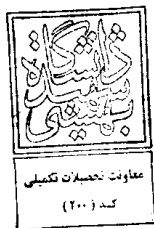 دانشگاه
شهید
بهشتی
معاونت تحصیلات تکمیلی
کـد ( ۲۰۰ )